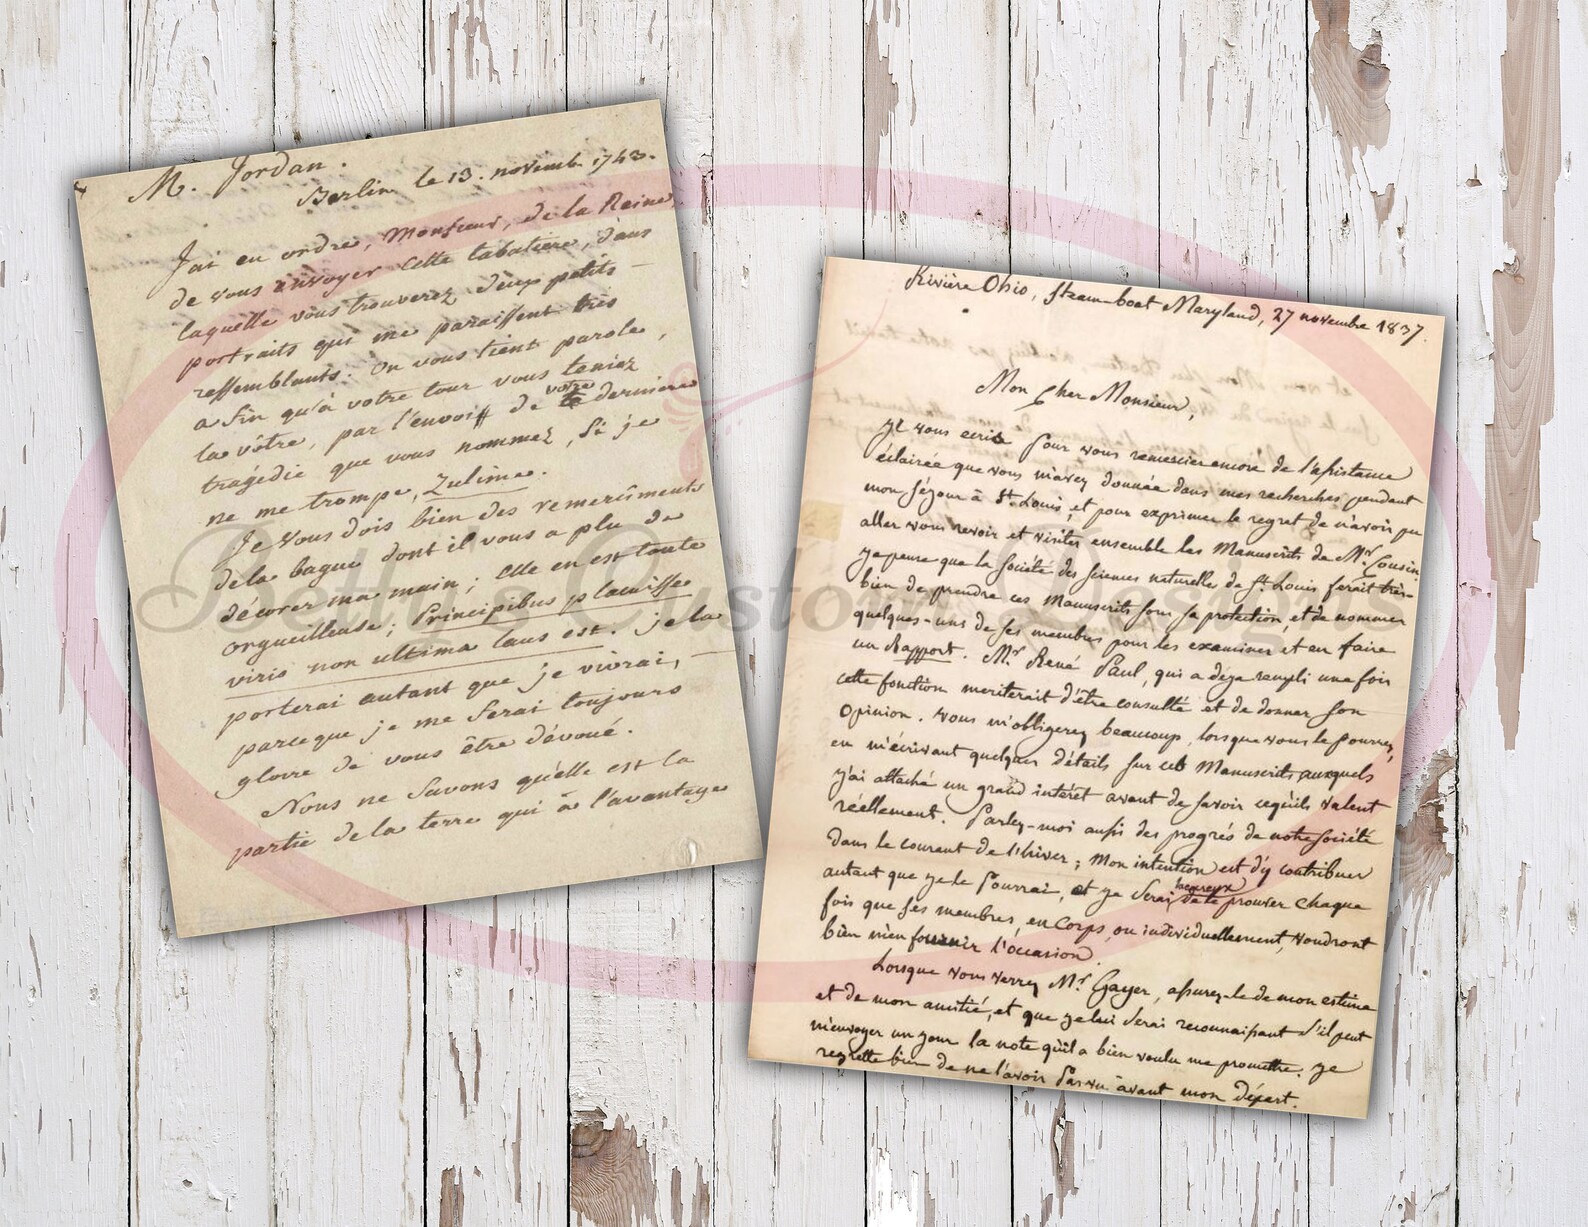 M. Jordan.
Berlin le 13. novemb. 1743.
J'ai eu ordre, Monsieur, de la Reine,
de vous envoyer cette tabatiere, dans
laquelle vous trouverez deux petits
portraits qui me paraissent très
ressemblants. On vous tient parole,
afin qu'à votre tour vous teniez
la vôtre, par l'envoi de votre derniere
tragédie que vous nommez, si je
ne me trompe, Zulime.
Je vous dois bien des remercîments
de la bague dont il vous a plu de
décorer ma main; elle en est toute
orgueilleuse; Principibus placuisse
viris non ultima laus est. je la
porterai autant que je vivrai,
parceque je me ferai toujours
gloire de vous être dévoué.
Nous ne savons quelle est la
partie de la terre qui à l'avantage
Rivière Ohio, Steam-boat Maryland, 27 novembre 1837.
Mon Cher Monsieur,
ye vous ecris pour vous remercier encore de l'assistance
éclairée que vous m'avez donnée dans mes recherches pendant
mon séjour à St. Louis, et pour exprimer le regret de n'avoir pu
aller vous revoir et visiter ensemble les Manuscrits de Mr. Cousin.
ye pense que la Société des Sciences naturelles de St. Louis ferait très-
bien de prendre ces Manuscrits sous sa protection, et de nommer
quelques-uns de ses membres pour les examiner et en faire
un Rapport. Mr. René Paul, qui a déja rempli une fois
cette fonction meriterait d'être consulté et de donner son
Opinion. Vous m'obligerez beaucoup, lorsque vous le pourrez,
en m'écrivant quelques détails sur ces Manuscrits auxquels
j'ai attaché un grand intérêt avant de savoir ce qu'ils valent
réellement. Parlez-moi aussi des progrès de notre Société
dans le courant de l'hiver; mon intention est d'y contribuer
autant que ye le pourrai, et ye serai heureux de le prouver chaque
fois que ses membres, en corps ou individuellement, voudront
bien m'en fournir l'occasion.
Lorsque vous verrez Mr. Gayer, assurez-le de mon estime
et de mon amitié, et que ye lui serai reconnaissant s'il peut
m'envoyer un jour la note qu'il a bien voulu me promettre. ye
regrette bien de ne l'avoir pas vu avant mon départ.
Betty's Custom Designs